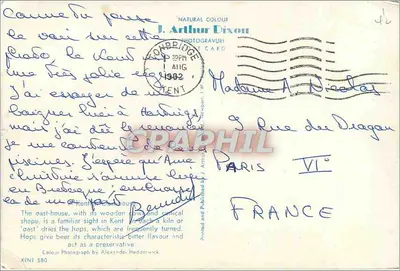 Comme tu peux
le voir sur cette
photo, le Kent est
une très jolie région
J'ai essayer de me
baigner hier à Hastings
mais j'ai dû y renoncer
je me contente de
piscines. J'espère qu'Anne
Christine s'amuse bien
en Bretagne; embrasse
la de ma part
Benedict
NATURAL COLOUR
J. Arthur Dixon
PHOTOGRAVURE
POST CARD
TONBRIDGE
PM
AUG
1962
KENT
Madame A.
9 Rue du Dragon
PARIS VIº
FRANCE
CPAPHIL
Kent
The oast-house, with its wooden cowl and conical
shape, is a familiar sight in Kent. In each a kiln or
"oast" dries the hops, which are frequently turned.
Hops give beer its characteristic bitter flavour and
act as a preservative.
Colour Photograph by Alexander
KENT 580
Printed and Published by J. Arthur Dixon